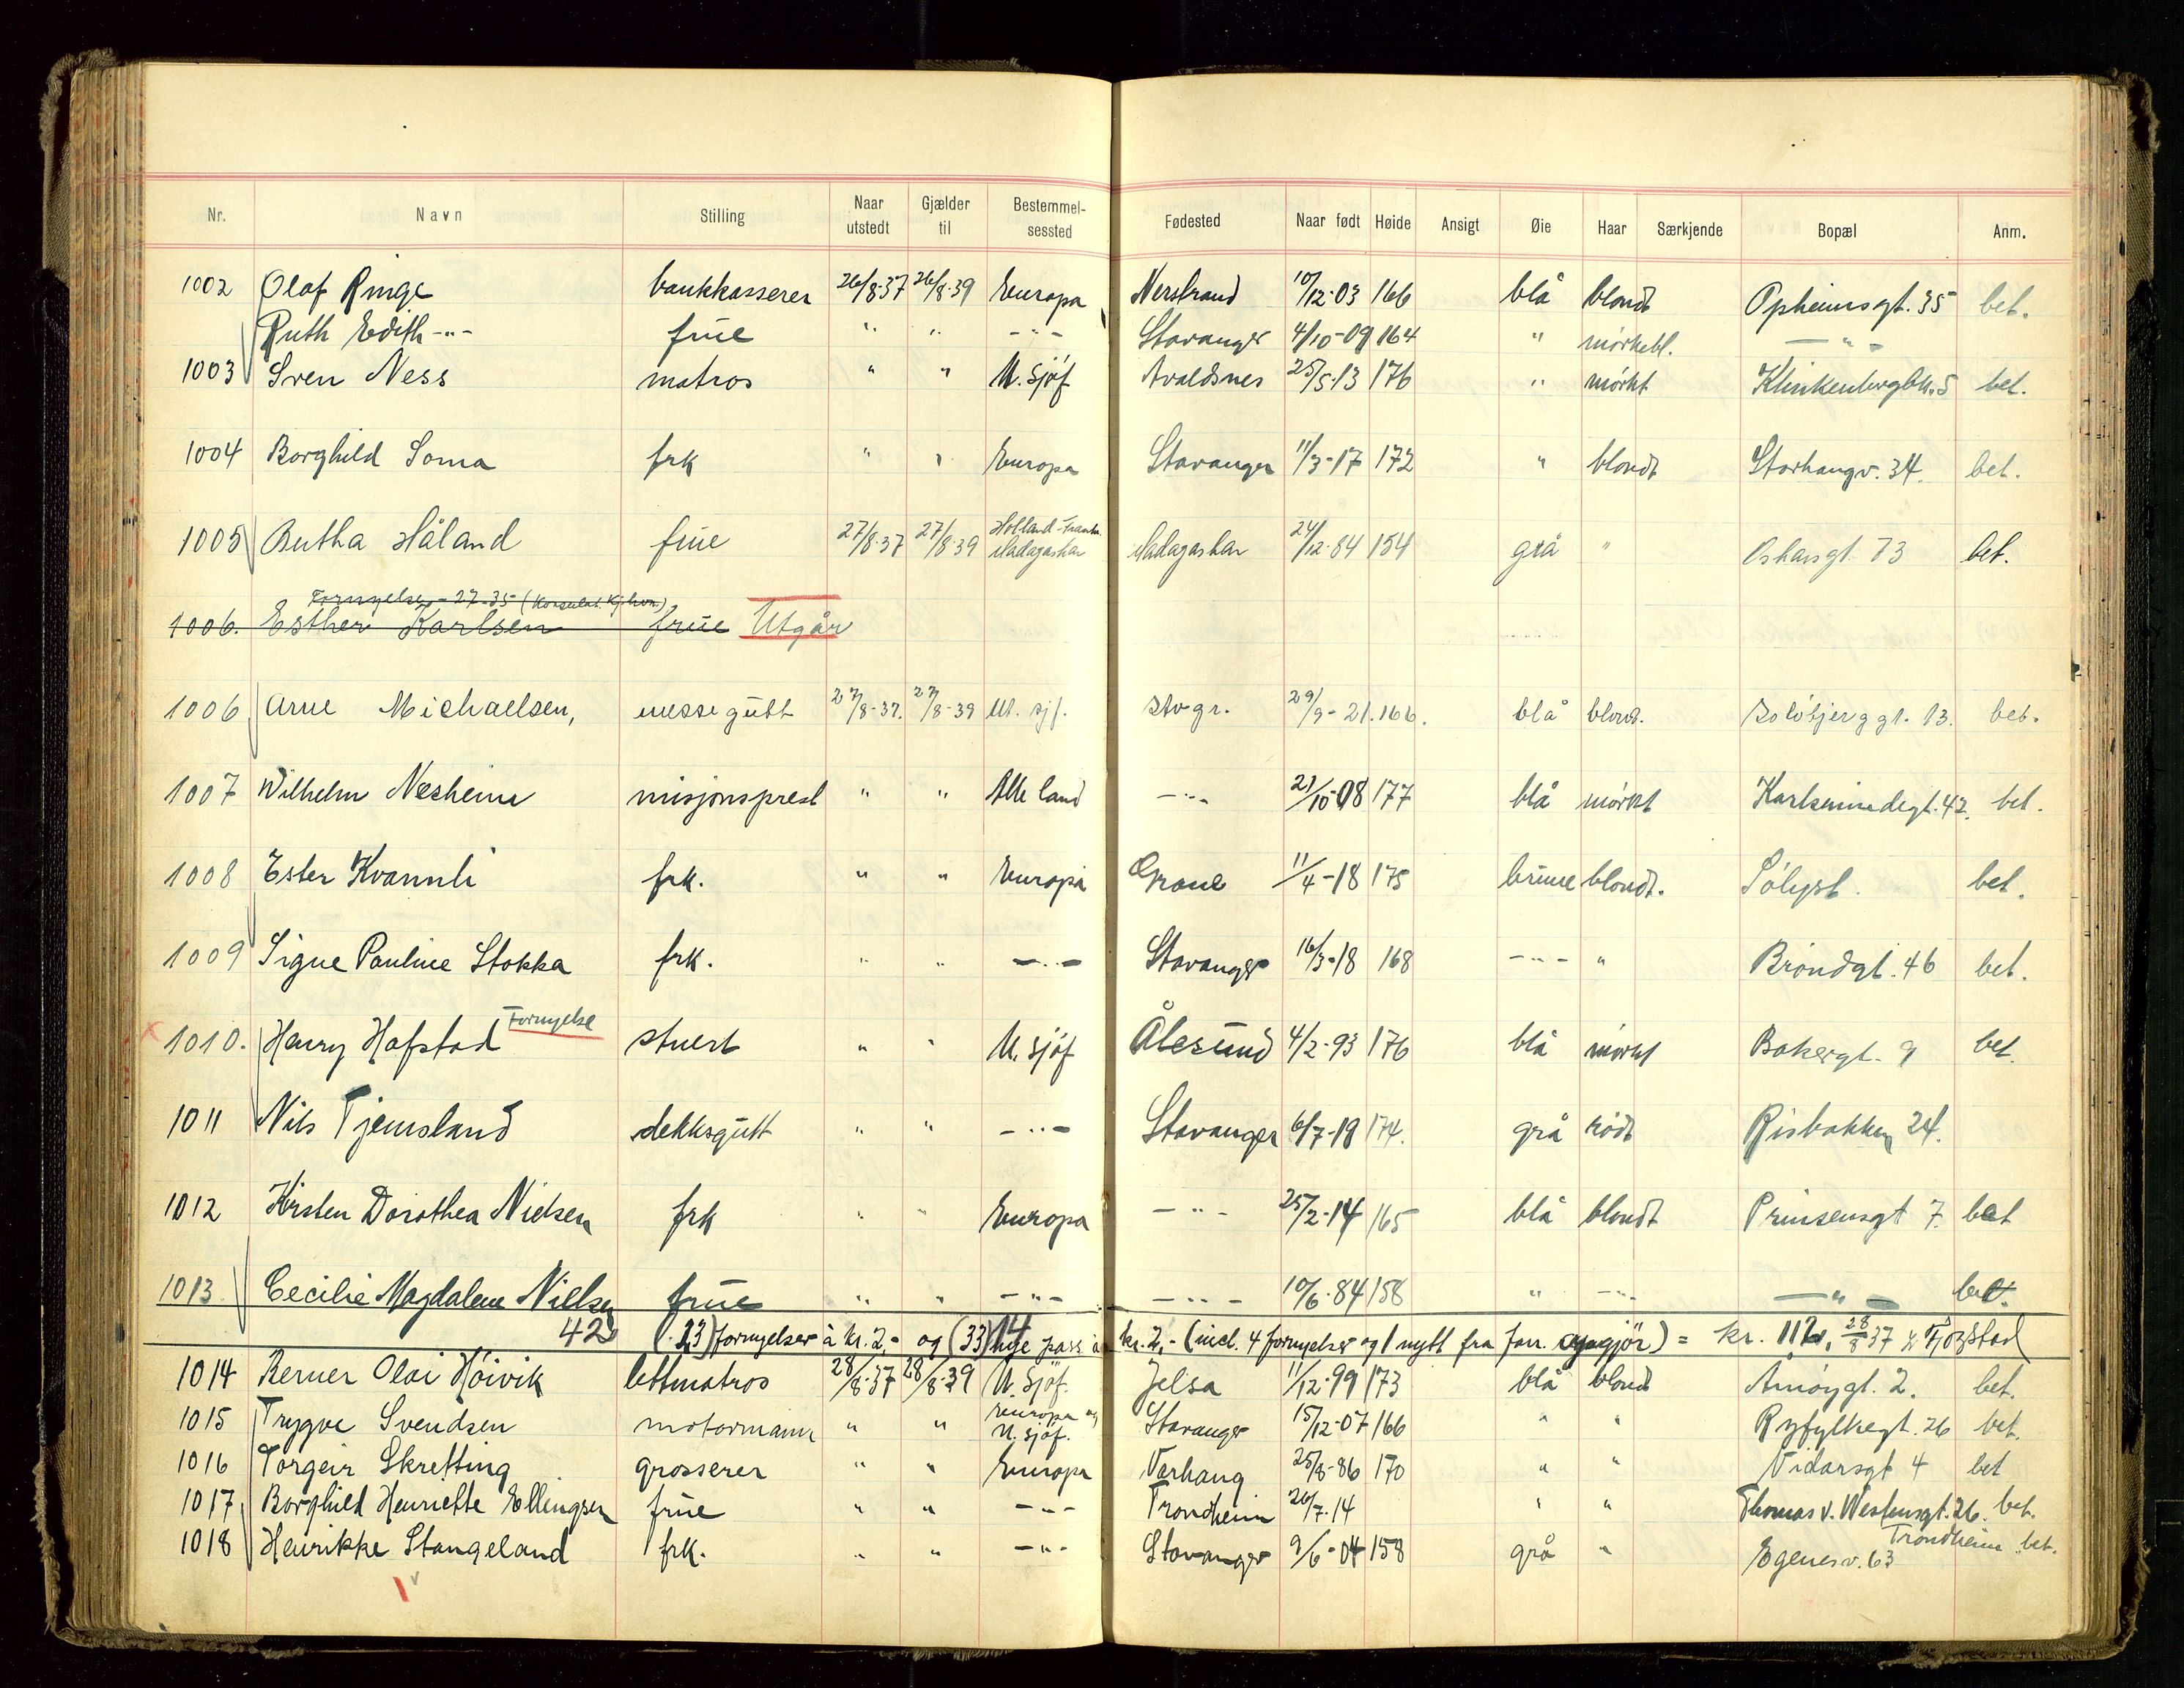 Nr. Navn Stilling Naar utstedt Gjælder til Bestemmel-sessted Fødested Naar født Høide Ansigt Øie Haar Særkjende Bopæl Anm.
1002 Olaf Ringe bankkasserer 26/8-37 26/8-39 Europa Nerstrand 10/12-03 166 blå blondt Opheimsgt. 35 bet.
Ruth Edith -"- frue " " -"- Stavanger 4/10-09 164 " mørkebl. -"-
1003 Sven Ness matros " " U. sjøf Avaldsnes 25/5-13 176 " mørkt Klinkenbergbk. 5 bet.
1004 Borghild Soma frk " " Europa Stavanger 11/3-17 172 " blondt Storhaugv. 34. bet.
1005 Bertha Håland frue 27/8-37 27/8-39 Holland-Frankr. Madagaskar Madagaskar 24/12-84 154 grå " Oskarsgt. 73 bet.
Fornyelse - 27-35 (Konsulat. Kjhvn.)
1006. Esther Karlsen frue Utgår
1006 Arne Michaelsen, messegutt 27/8-37. 27/8-39 Ut. sjf. Stvgr. 29/9-21. 166. blå blond. Solvbjerggt. 13. bet.
1007 Wilhelm Nesheim misjonsprest " " Alle land -"- 21/10-08 177 blå mørkt Karlsminnedegt. 42. bet.
1008 Ester Kvannli frk. " " Europa Grane 11/4-18 175 brune blondt. Sølyst. bet.
1009 Signe Pauline Stokka frk. " " -"- Stavanger 16/3-18 168 -"- " Brøndgt. 46 bet.
1010. Henry Hafstad Fornyelse stuert " " U. sjøf Ålesund 4/2-93 176 blå mørkt Bakergt. 9 bet.
1011 Nils Tjemsland dekksgutt " " -"- Stavanger 6/7-18 174. grå rødt Risbakken 24.
1012 Kirsten Dorothea Nielsen frk " " Europa -"- 25/2-14 165 blå blondt Prinsensgt 7. bet
1013 Cecilie Magdalene Nielsen frue " " -"- -"- 10/6-84 158 " -"- -"- bet.
42 (23) fornyelser à kr. 2,- og (33) 14 nye pass à kr. 2,- (incl. 4 fornyelser og 1 nytt fra forr. opgjör) = kr. 112,- 28/8 37
1014 Berner Olai Høivik lettmatros 28/8-37 28/8-39 U. sjøf. Jelsa 11/12-99 173 blå blond Amøygt. 2. bet.
1015 Trygve Svendsen motormann " " Europa og U. sjøf. Stavanger 15/12-07 166 " " Ryfylkegt. 26 bet.
1016 Torgeir Skretting grosserer " " Europa Varhaug 25/8-86 170 " " Vidarsgt 4 bet
1017 Borghild Henriette Ellingsen frue " " -"- Trondheim 26/7-14 " " Thomas v. Westensgt. 26. Trondheim bet.
1018 Henrikke Stangeland frk. " " -"- Stavanger 9/6-04 158 grå " Egenesv. 63 bet.